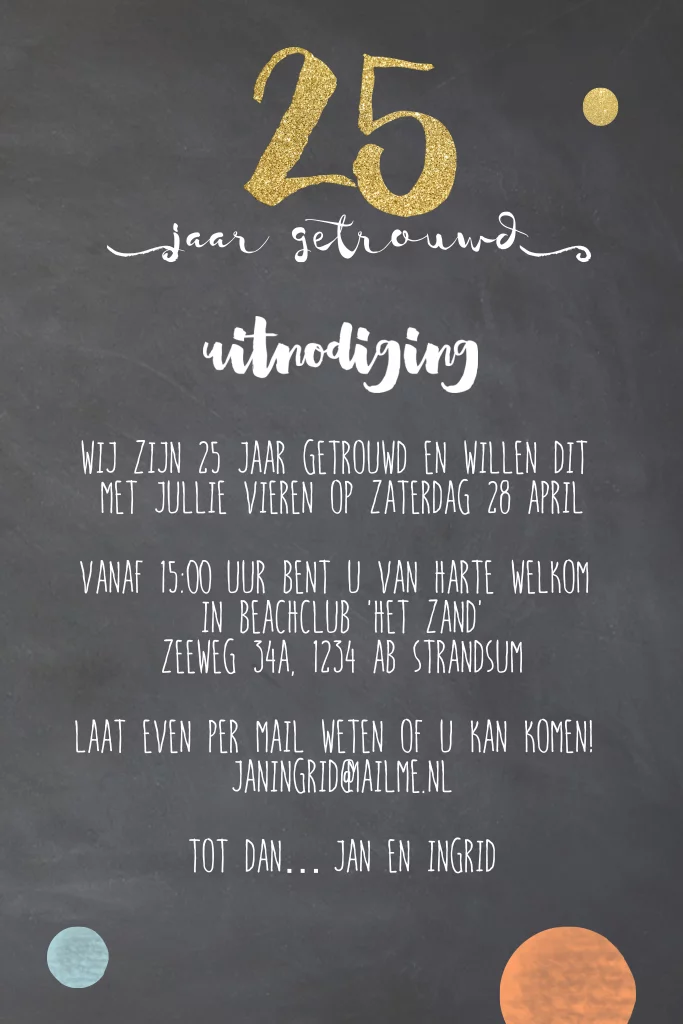 25
jaar getrouwd
uitnodiging
WIJ ZIJN 25 JAAR GETROUWD EN WILLEN DIT
MET JULLIE VIEREN OP ZATERDAG 28 APRIL
VANAF 15:00 UUR BENT U VAN HARTE WELKOM
IN BEACHCLUB 'HET ZAND'
ZEEWEG 34A, 1234 AB STRANDSUM
LAAT EVEN PER MAIL WETEN OF U KAN KOMEN!
JANINGRID@MAILME.NL
TOT DAN... JAN EN INGRID